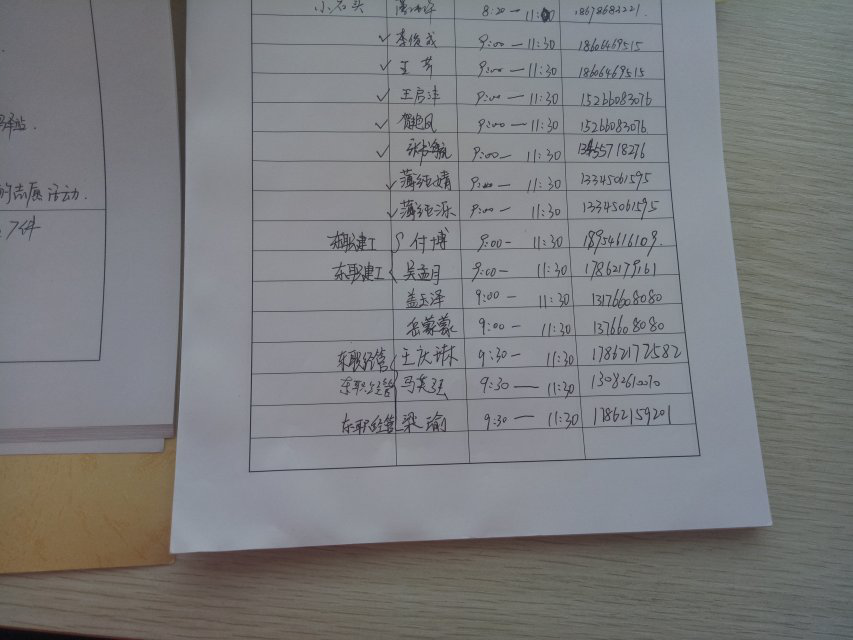 驿站.
的志愿活动.
7件
小石头 8:20—11:00 18678682221.
✓ 李俊成 9:00—11:30 18606469515
✓ 王芳 9:00—11:30 18606469515
✓ 王启沣 9:00—11:30 15266083076
✓ 9:00—11:30 15266083076
✓ 9:00—11:30 13455718276
✓ 薄纯婧 9:00—11:30 13345061595
✓ 薄纯源 9:00—11:30 13345061595
东职建工 付博 9:00—11:30 18954616109.
东职建工 吴孟月 9:00—11:30 17862179161
盖玉泽 9:00—11:30 13176608080
岳蒙蒙 9:00—11:30 1376608080
东职经管 王庆琳 9:30—11:30 17862172582
东职经管 马英强 9:30—11:30 13082610070
东职经管 梁瑜 9:30—11:30 17862159201